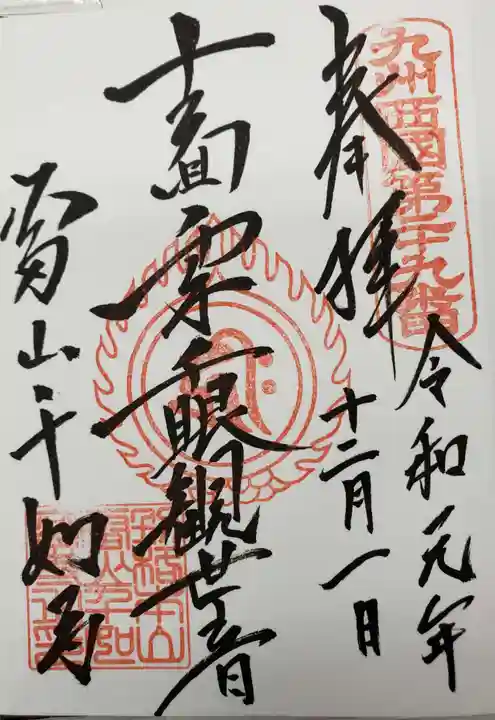 九州西国第二十九番
奉拝
令和元年
十二月一日
十一面千手千眼観世音
雷山千如寺